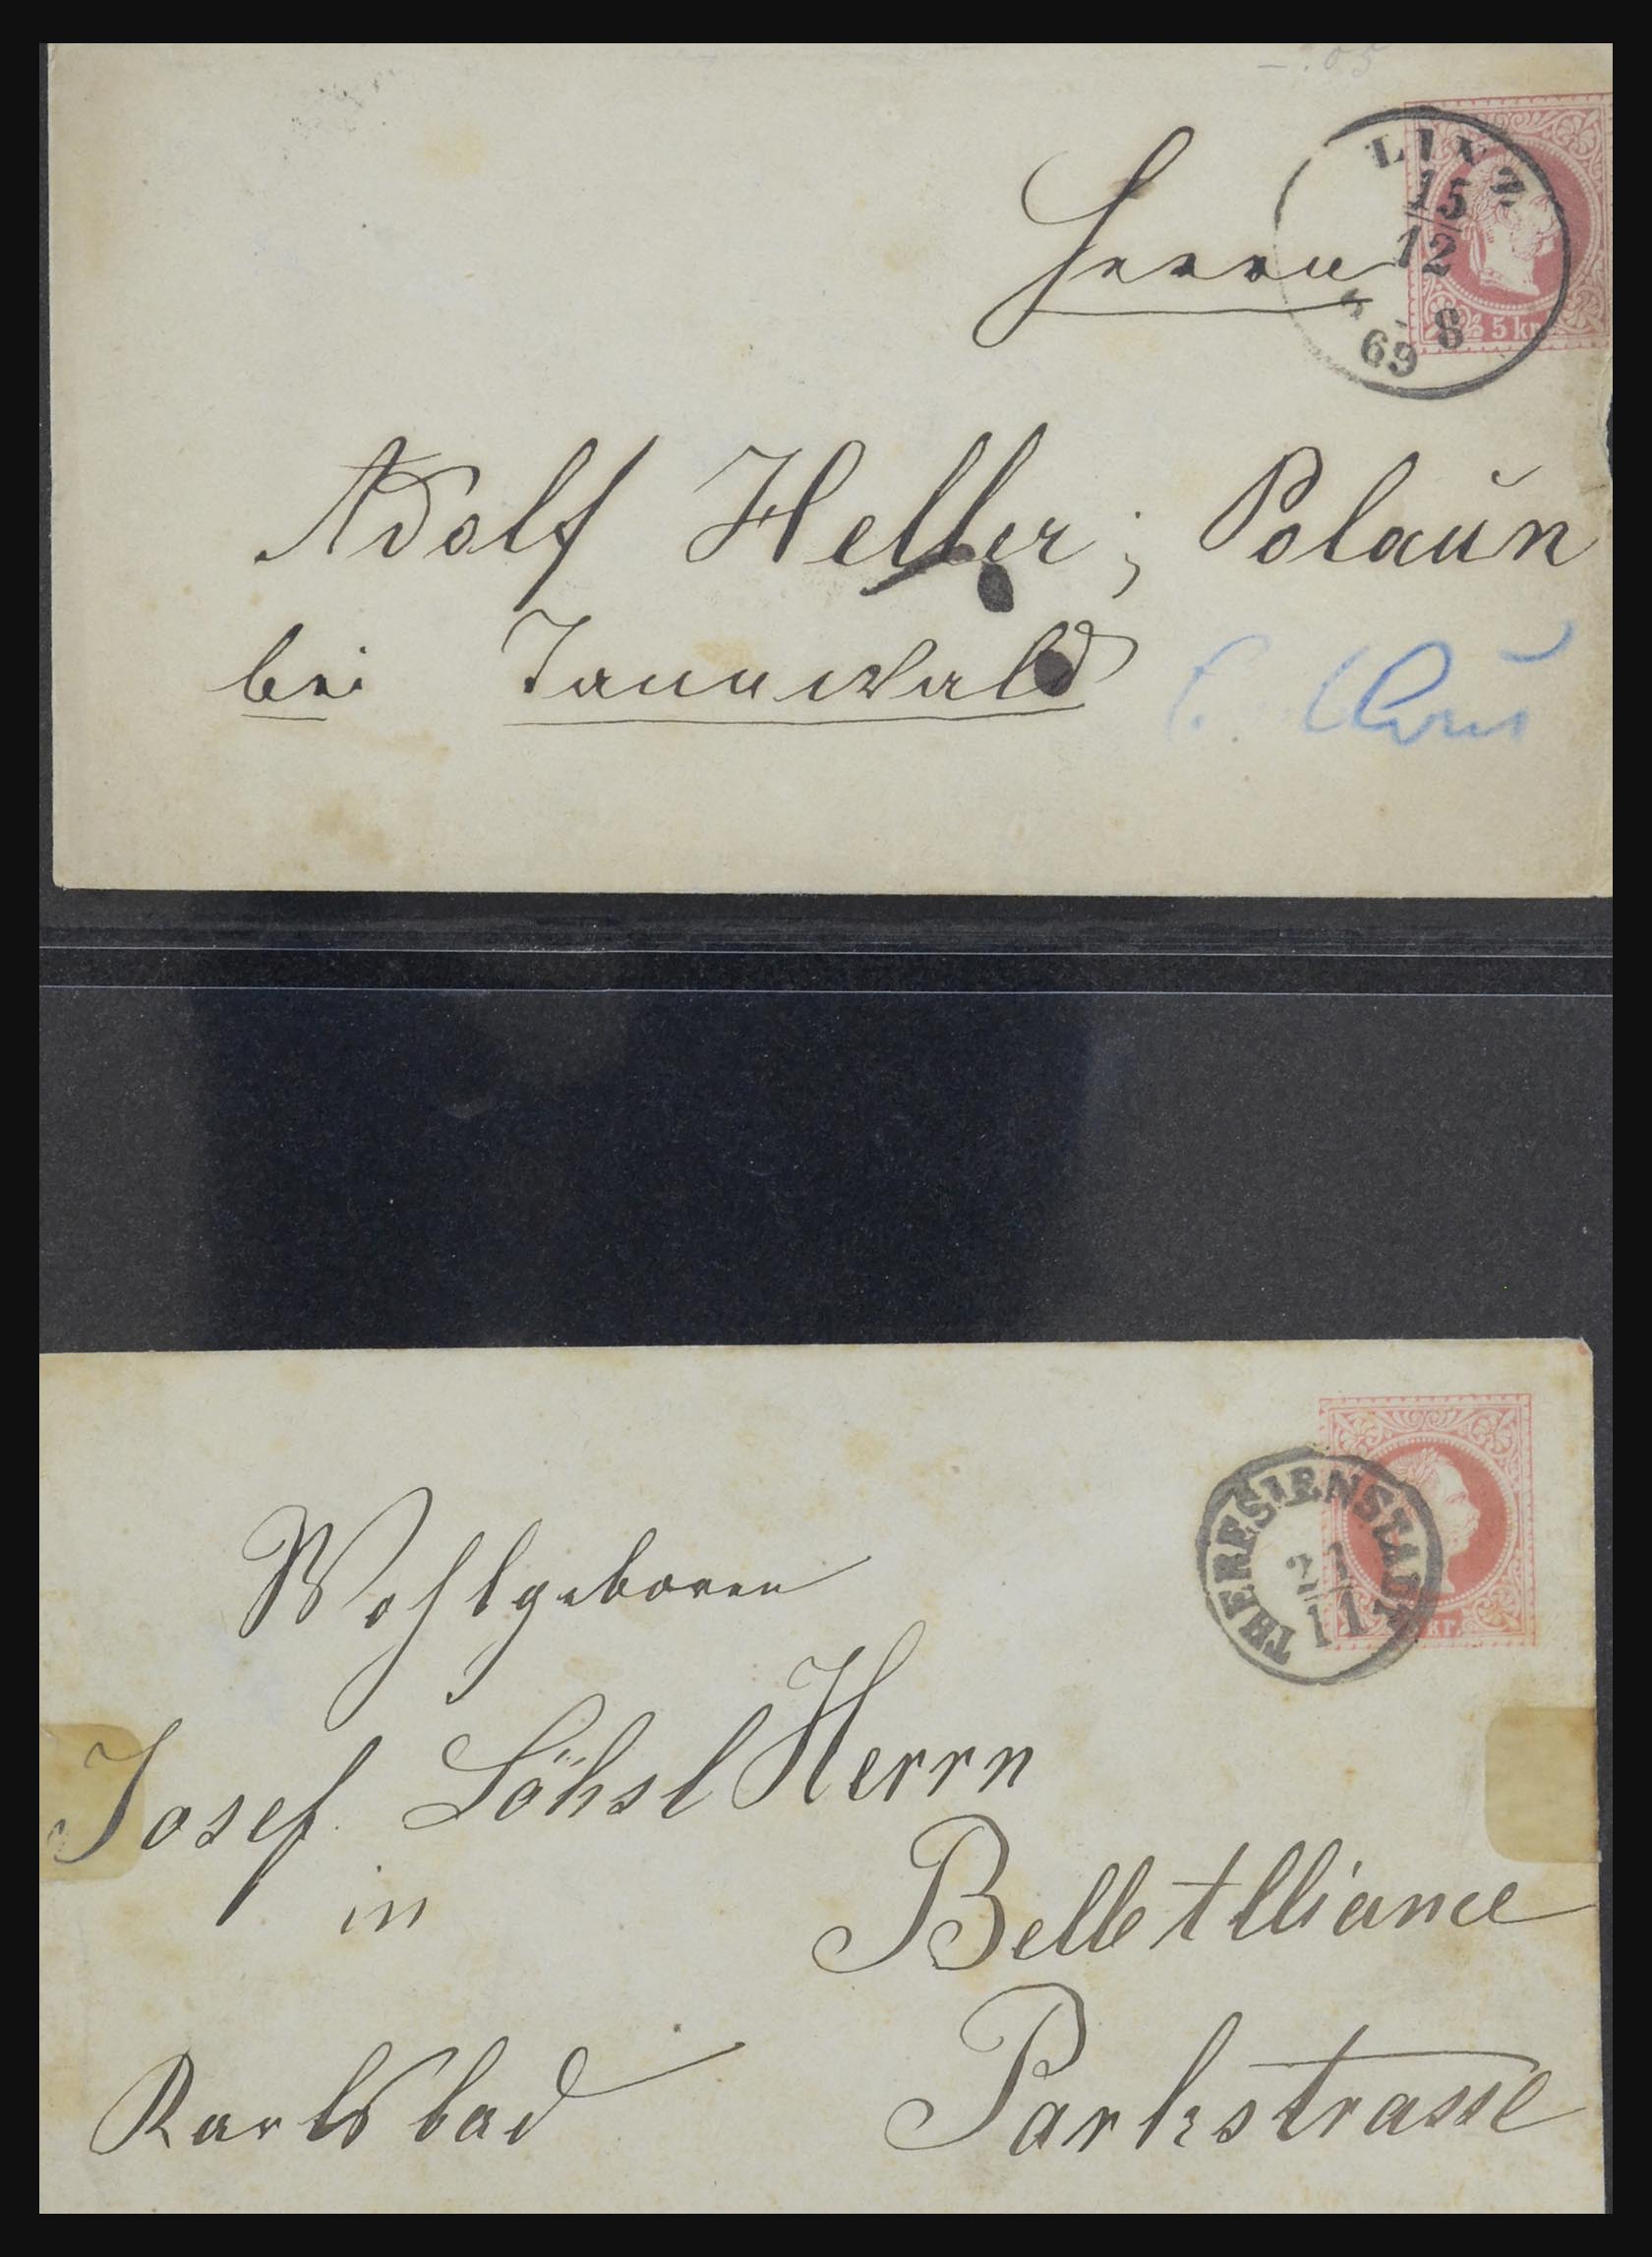 LINZ
15
12
8
69
5 kr
Herrn
Adolf Heller; Polaun
bei Tannwald
THERESIENSTADT
21
11
kr.
Wohlgeboren
Josef Löhsl Herrn
in
Belle Alliance
Karlsbad
Parkstrasse